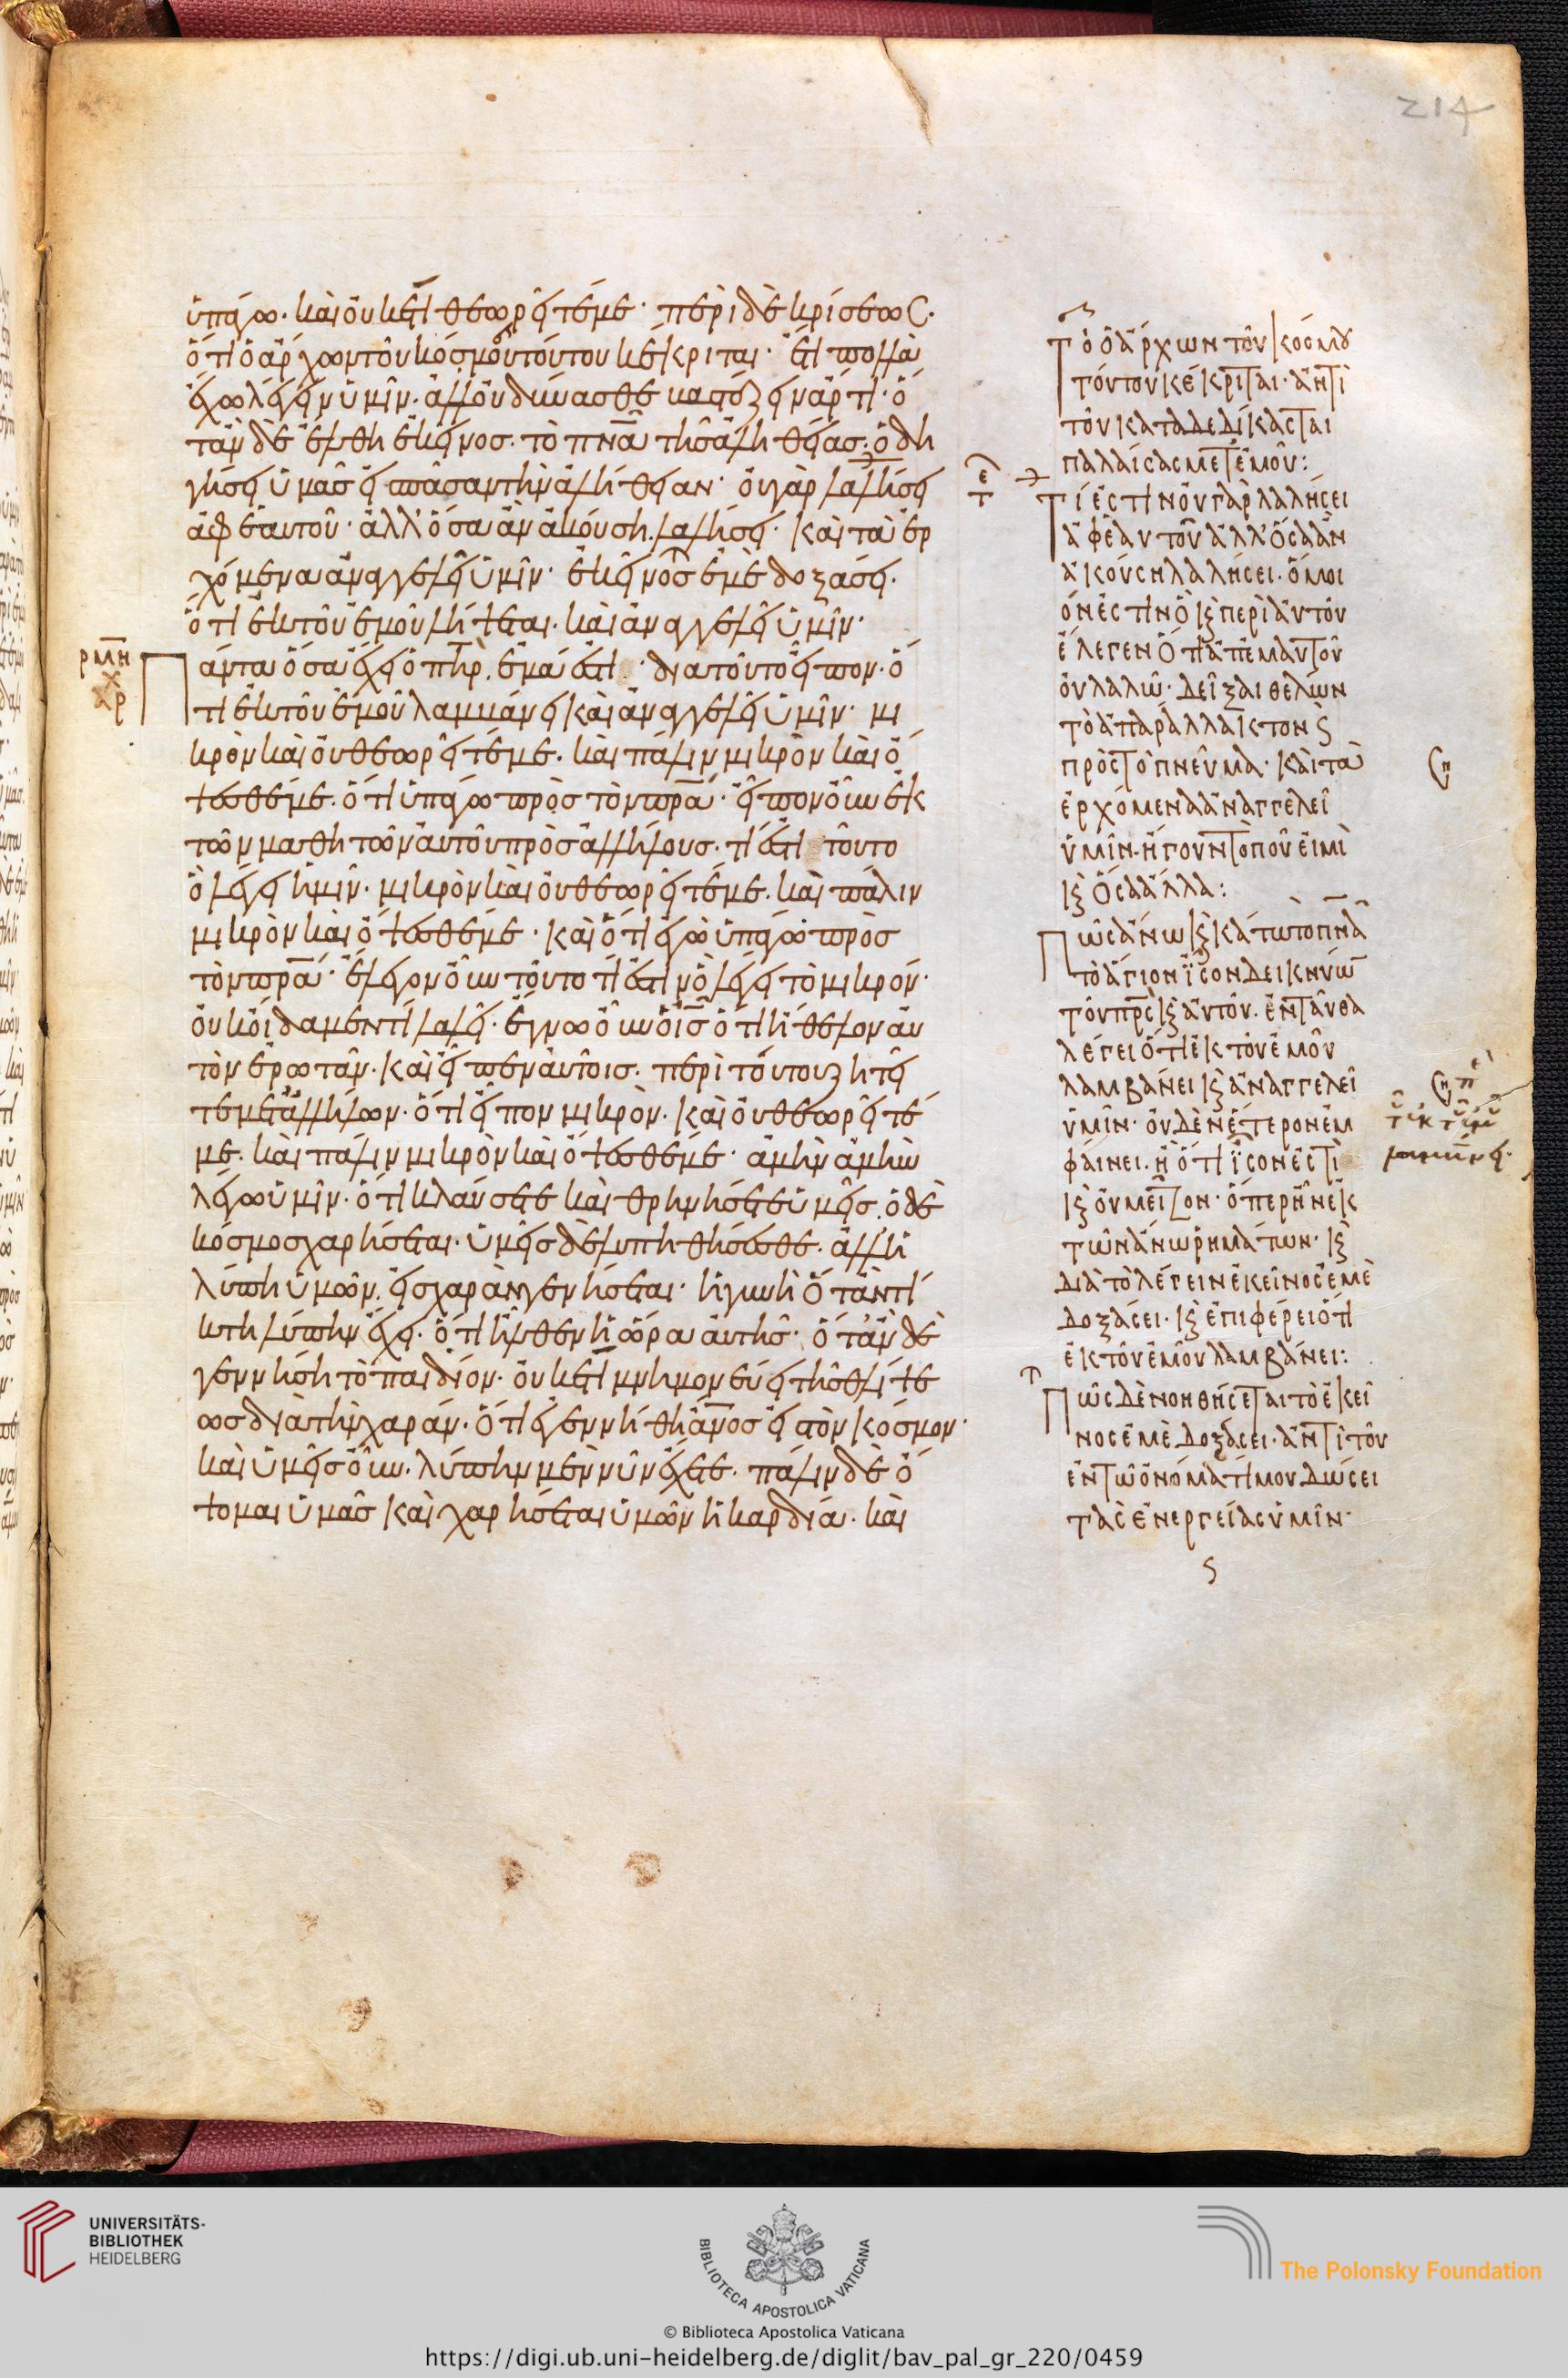 214
ὑπάγω· καὶ οὐκέτι θεωρεῖτέ με· περὶ δὲ κρίσεως·
ὅτι ὁ ἄρχων τοῦ κόσμου τούτου κέκριται· ἔτι πολλὰ
ἔχω λέγειν ὑμῖν· ἀλλ οὐ δύνασθε βαστάζειν ἄρτι· ὅ
ταν δὲ ἔλθη ἐκεῖνος· τὸ πνα τῆς ἀληθείας· ὁδη
γήσει ὑμᾶς εἰς πᾶσαν τὴν ἀλήθειαν· οὐ γὰρ λαλήσει
ἀφ ἑαυτοῦ· ἀλλ' ὅσα ἂν ἀκούση λαλήσει· καὶ τὰ ἐρ
χόμενα ἀναγγελεῖ ὑμῖν· ἐκεῖνος ἐμὲ δοξάσει·
ὅτι ἐκ τοῦ ἐμοῦ λήψεται· καὶ ἀναγγελεῖ ὑμῖν·
ρμη
Πάντα ὅσα ἔχει ὁ πηρ, ἐμά ἐστι· διατοῦτο εἶπον· ὅ
τι ἐκ τοῦ ἐμοῦ λαμβάνει καὶ ἀναγγελεῖ ὑμῖν· μι
κρὸν καὶ οὐ θεωρεῖτέ με· καὶ πάλιν μικρὸν καὶ ὄ
ψεσθέ με· ὅτι ὑπάγω πρὸς τὸν πρα· εἶπον οὖν ἐκ
τῶν μαθητῶν αὐτοῦ πρὸς ἀλλήλους· τί ἐστι τοῦτο
ὃ λέγει ἡμῖν· μικρὸν καὶ οὐ θεωρεῖτέ με· καὶ πάλιν
μικρὸν καὶ ὄψεσθέ με· καὶ ὅτι ἐγὼ ὑπάγω πρὸς
τὸν πρα· ἔλεγον οὖν τοῦτο τί ἐστιν ὃ λέγει τὸ μικρόν·
οὐκ οἴδαμεν τί λαλεῖ· ἔγνω οὖν ὁ ις ὅτι ἤθελον αὐ
τὸν ἐρωτᾶν· καὶ εἶπεν αὐτοῖς· περὶ τούτου ζητεῖ
τε μετ ἀλλήλων· ὅτι εἶπον μικρόν· καὶ οὐ θεωρεῖτέ
με· καὶ πάλιν μικρὸν καὶ ὄψεσθέ με· ἀμὴν ἀμὴν
λέγω ὑμῖν· ὅτι κλαύσετε καὶ θρηνήσετε ὑμεῖς· ὁ δὲ
κόσμος χαρήσεται· ὑμεῖς δὲ λυπηθήσεσθε· ἀλλ ἡ
λύπη ὑμῶν, εἰς χαρὰν γενήσεται· ἡ γυνὴ ὅταν τί
κτη λύπην ἔχει· ὅτι ἦλθεν ἡ ὥρα αὐτῆς· ὅταν δὲ
γεννήση τὸ παιδίον· οὐκέτι μνημονεύει τῆς θλίψε
ως διὰ τὴν χαράν· ὅτι ἐγεννήθη ἄνος εἰς τὸν κόσμον·
καὶ ὑμεῖς οὖν· λύπην μὲν νῦν ἔχετε· πάλιν δὲ ὄ
ψομαι ὑμᾶς καὶ χαρήσεται ὑμῶν ἡ καρδία· καὶ
Τὸ ὁ ἄρχων τοῦ κόσμου
τούτου κέκριται· ἀντὶ
τοῦ καταδεδίκασται
παλαίσας μετ ἐμοῦ:
Τί ἐστιν οὐ γὰρ λαλήσει
ἀφ ἑαυτοῦ ἀλλ' ὅσα ἂν
ἀκούση λαλήσει· ὅμοι
όν ἐστιν ὃ κ περὶ αὐτοῦ
ἔλεγεν ὅτι ἀπ ἐμαυτοῦ
οὐ λαλῶ· δεῖξαι θέλων
τὸ ἀπαράλλακτον κ
πρὸς τὸ πνεῦμα· καὶ τὰ
ἐρχόμενα ἀναγγελεῖ
ὑμῖν· ἤγουν τὸ ποῦ εἰμὶ
κ ὅσα ἄλλα:
Πῶς ἄνω κ κάτω τὸ πνα
τὸ ἅγιον ἴσον δεικνύων
τοῦ πρς κ αὐτοῦ· ἐνταῦθα
λέγει ὅτι ἐκ τοῦ ἐμοῦ
λαμβάνει κ ἀναγγελεῖ
ὑμῖν· οὐδὲν ἕτερον ἐμ
φαίνει· ἢ ὅτι ἴσον ἐστὶ
κ οὐ μεῖζον· ὅπερ ἦν ἐκ
τῶν ἄνω ῥημάτων· κ
διὰ τὸ λέγειν ἐκεῖνος ἐμὲ
δοξάσει· κ ἐπιφέρει ὅτι
ἐκ τοῦ ἐμοῦ λαμβάνει:
Πῶς δὲ νοηθήσεται τὸ ἐκεῖ
νος ἐμὲ δοξάσει· ἀντὶ τοῦ
ἐν τῶ ὀνόματί μου δώσει
τὰς ἐνεργείας ὑμῖν·
UNIVERSITÄTS-
BIBLIOTHEK
HEIDELBERG
BIBLIOTECA APOSTOLICA VATICANA
The Polonsky Foundation
© Biblioteca Apostolica Vaticana
https://digi.ub.uni-heidelberg.de/diglit/bav_pal_gr_220/0459